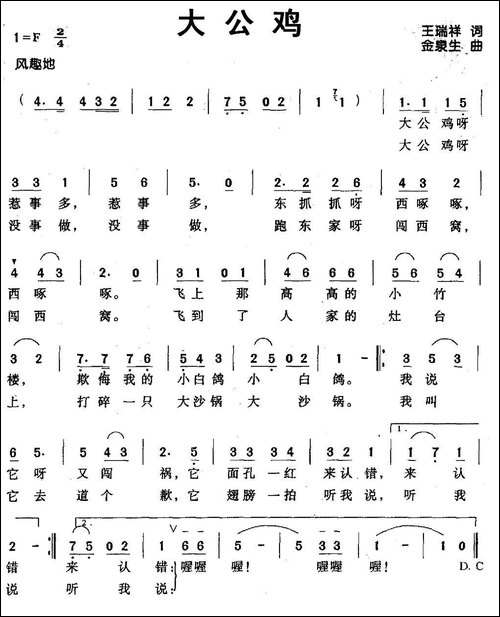 大公鸡
1=F 2/4
王瑞祥 词
金泉生 曲
风趣地
( 4. 4 4 3 2 | 1 2 2 | 7 5 0 2 | 1 1 ) | 1. 1 1 5 |
大公 鸡呀
大公 鸡呀
3 3 1 | 5 6 | 5. 0 | 2. 2 2 6 | 4 3 2 |
惹事多, 惹事 多, 东抓抓呀 西啄啄,
没事做, 没事 做, 跑东家呀 闯西窝,
4 4 3 | 2. 0 | 3 1 0 1 | 4 6 6 6 | 5 6 5 4 |
西啄 啄。 飞上 那 高 高的 小 竹
闯西 窝。 飞到 了 人 家的 灶 台
3 2 | 7. 7 7 6 | 5 4 3 | 2 5 0 2 | 1 - :| 3 5 3 |
楼, 欺侮我的 小白鸽 小 白 鸽。 我说
上, 打碎一只 大沙锅 大 沙 锅。 我叫
6 5. | 5 4 3 | 2. 5 | 3 3 1 2 | 1 2 1 | 1 7 1 |
它呀 又闯 祸,它 面孔一红 来认错, 来 认
它去 道个 歉,它 翅膀一拍 听我说, 听 我
2 - :| 7 5 0 2 | 1 6 6 | 5 - | 5 0 6 6 | 1 - | 1 0 |
错 来 认 错; 喔喔 喔! 喔喔 喔! D. C
说 听 我 说: